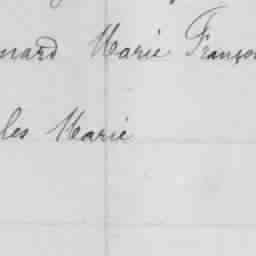 nard Marie Franço
les Marie